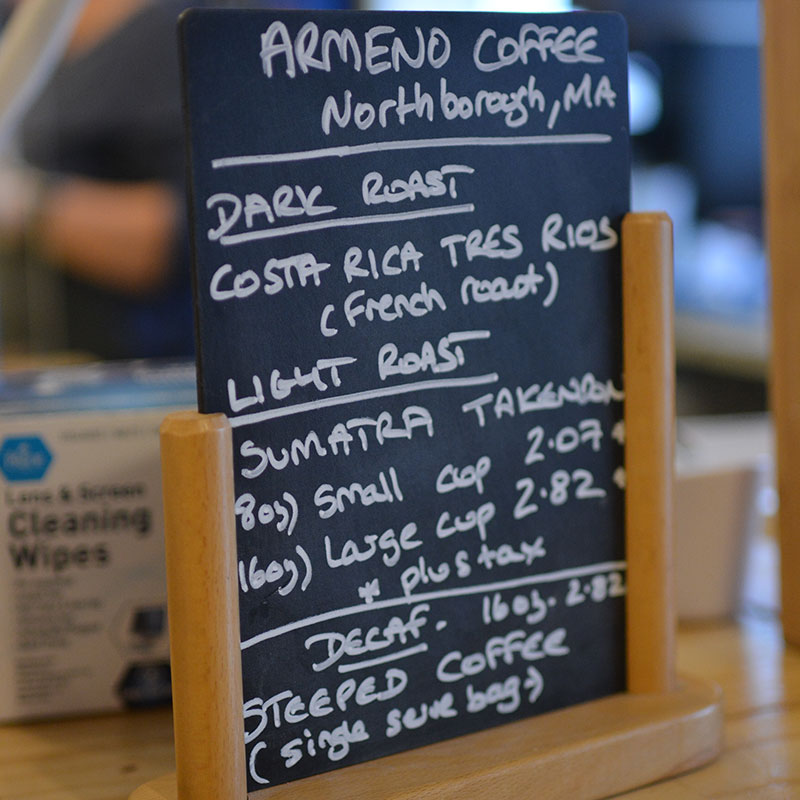 ARMENO COFFEE
Northborough, MA
DARK ROAST
COSTA RICA TRES RIOS
(French roast)
LIGHT ROAST
SUMATRA TAKENGON
8oz) Small cup 2.07 *
(16oz) Large cup 2.82 *
* plus tax
DECAF. 16oz. 2.82
STEEPED COFFEE
(single serve bags)
Lens & Screen
Cleaning
Wipes